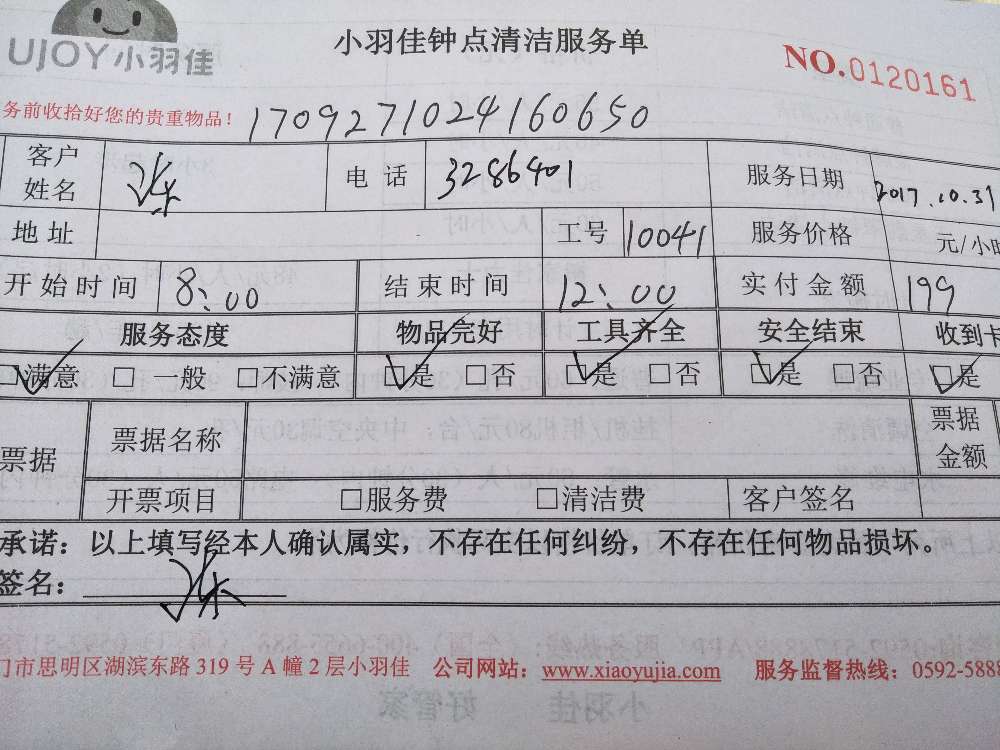 UJOY小羽佳
小羽佳钟点清洁服务单
NO.0120161
务前收拾好您的贵重物品！ 1709271024160650
客户姓名 电话 3286401 服务日期 2017.10.31
地址 工号 10041 服务价格 元/小时
开始时间 8:00 结束时间 12:00 实付金额 199
服务态度 物品完好 工具齐全 安全结束 收到卡
满意 □ 一般 □不满意 是 □否 是 □否 是 □否 是
票据 票据名称 票据金额
开票项目 □服务费 □清洁费 客户签名
承诺：以上填写经本人确认属实，不存在任何纠纷，不存在任何物品损坏。
签名：
门市思明区湖滨东路 319 号 A 幢 2 层小羽佳 公司网站：www.xiaoyujia.com 服务监督热线：0592-5888